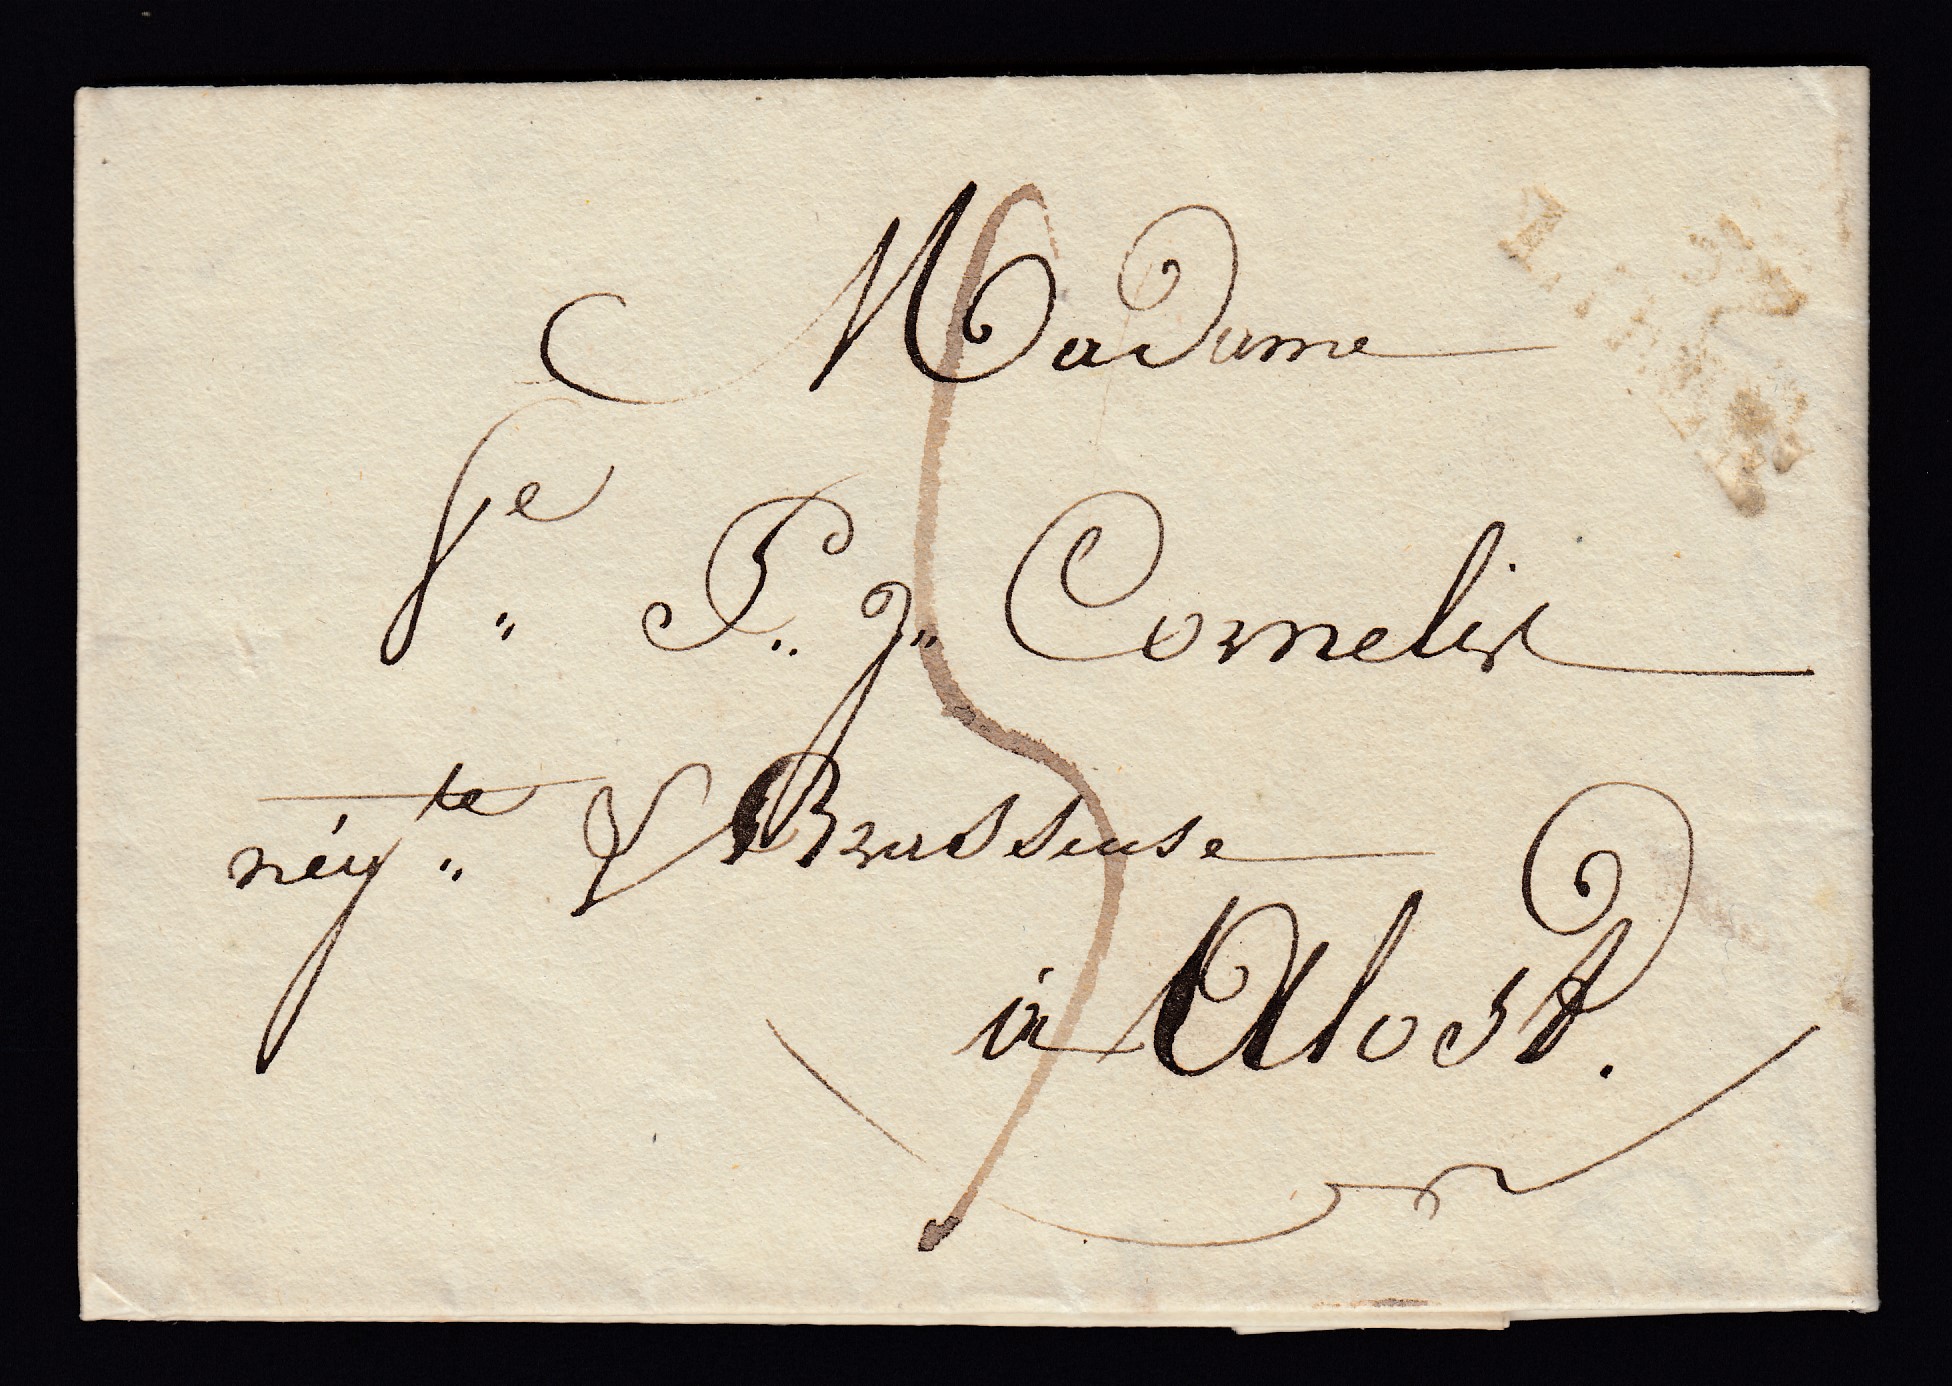 Madame
Ve„ P„ J„ Cornelis
négte„ & Brasseuse
à Alost.